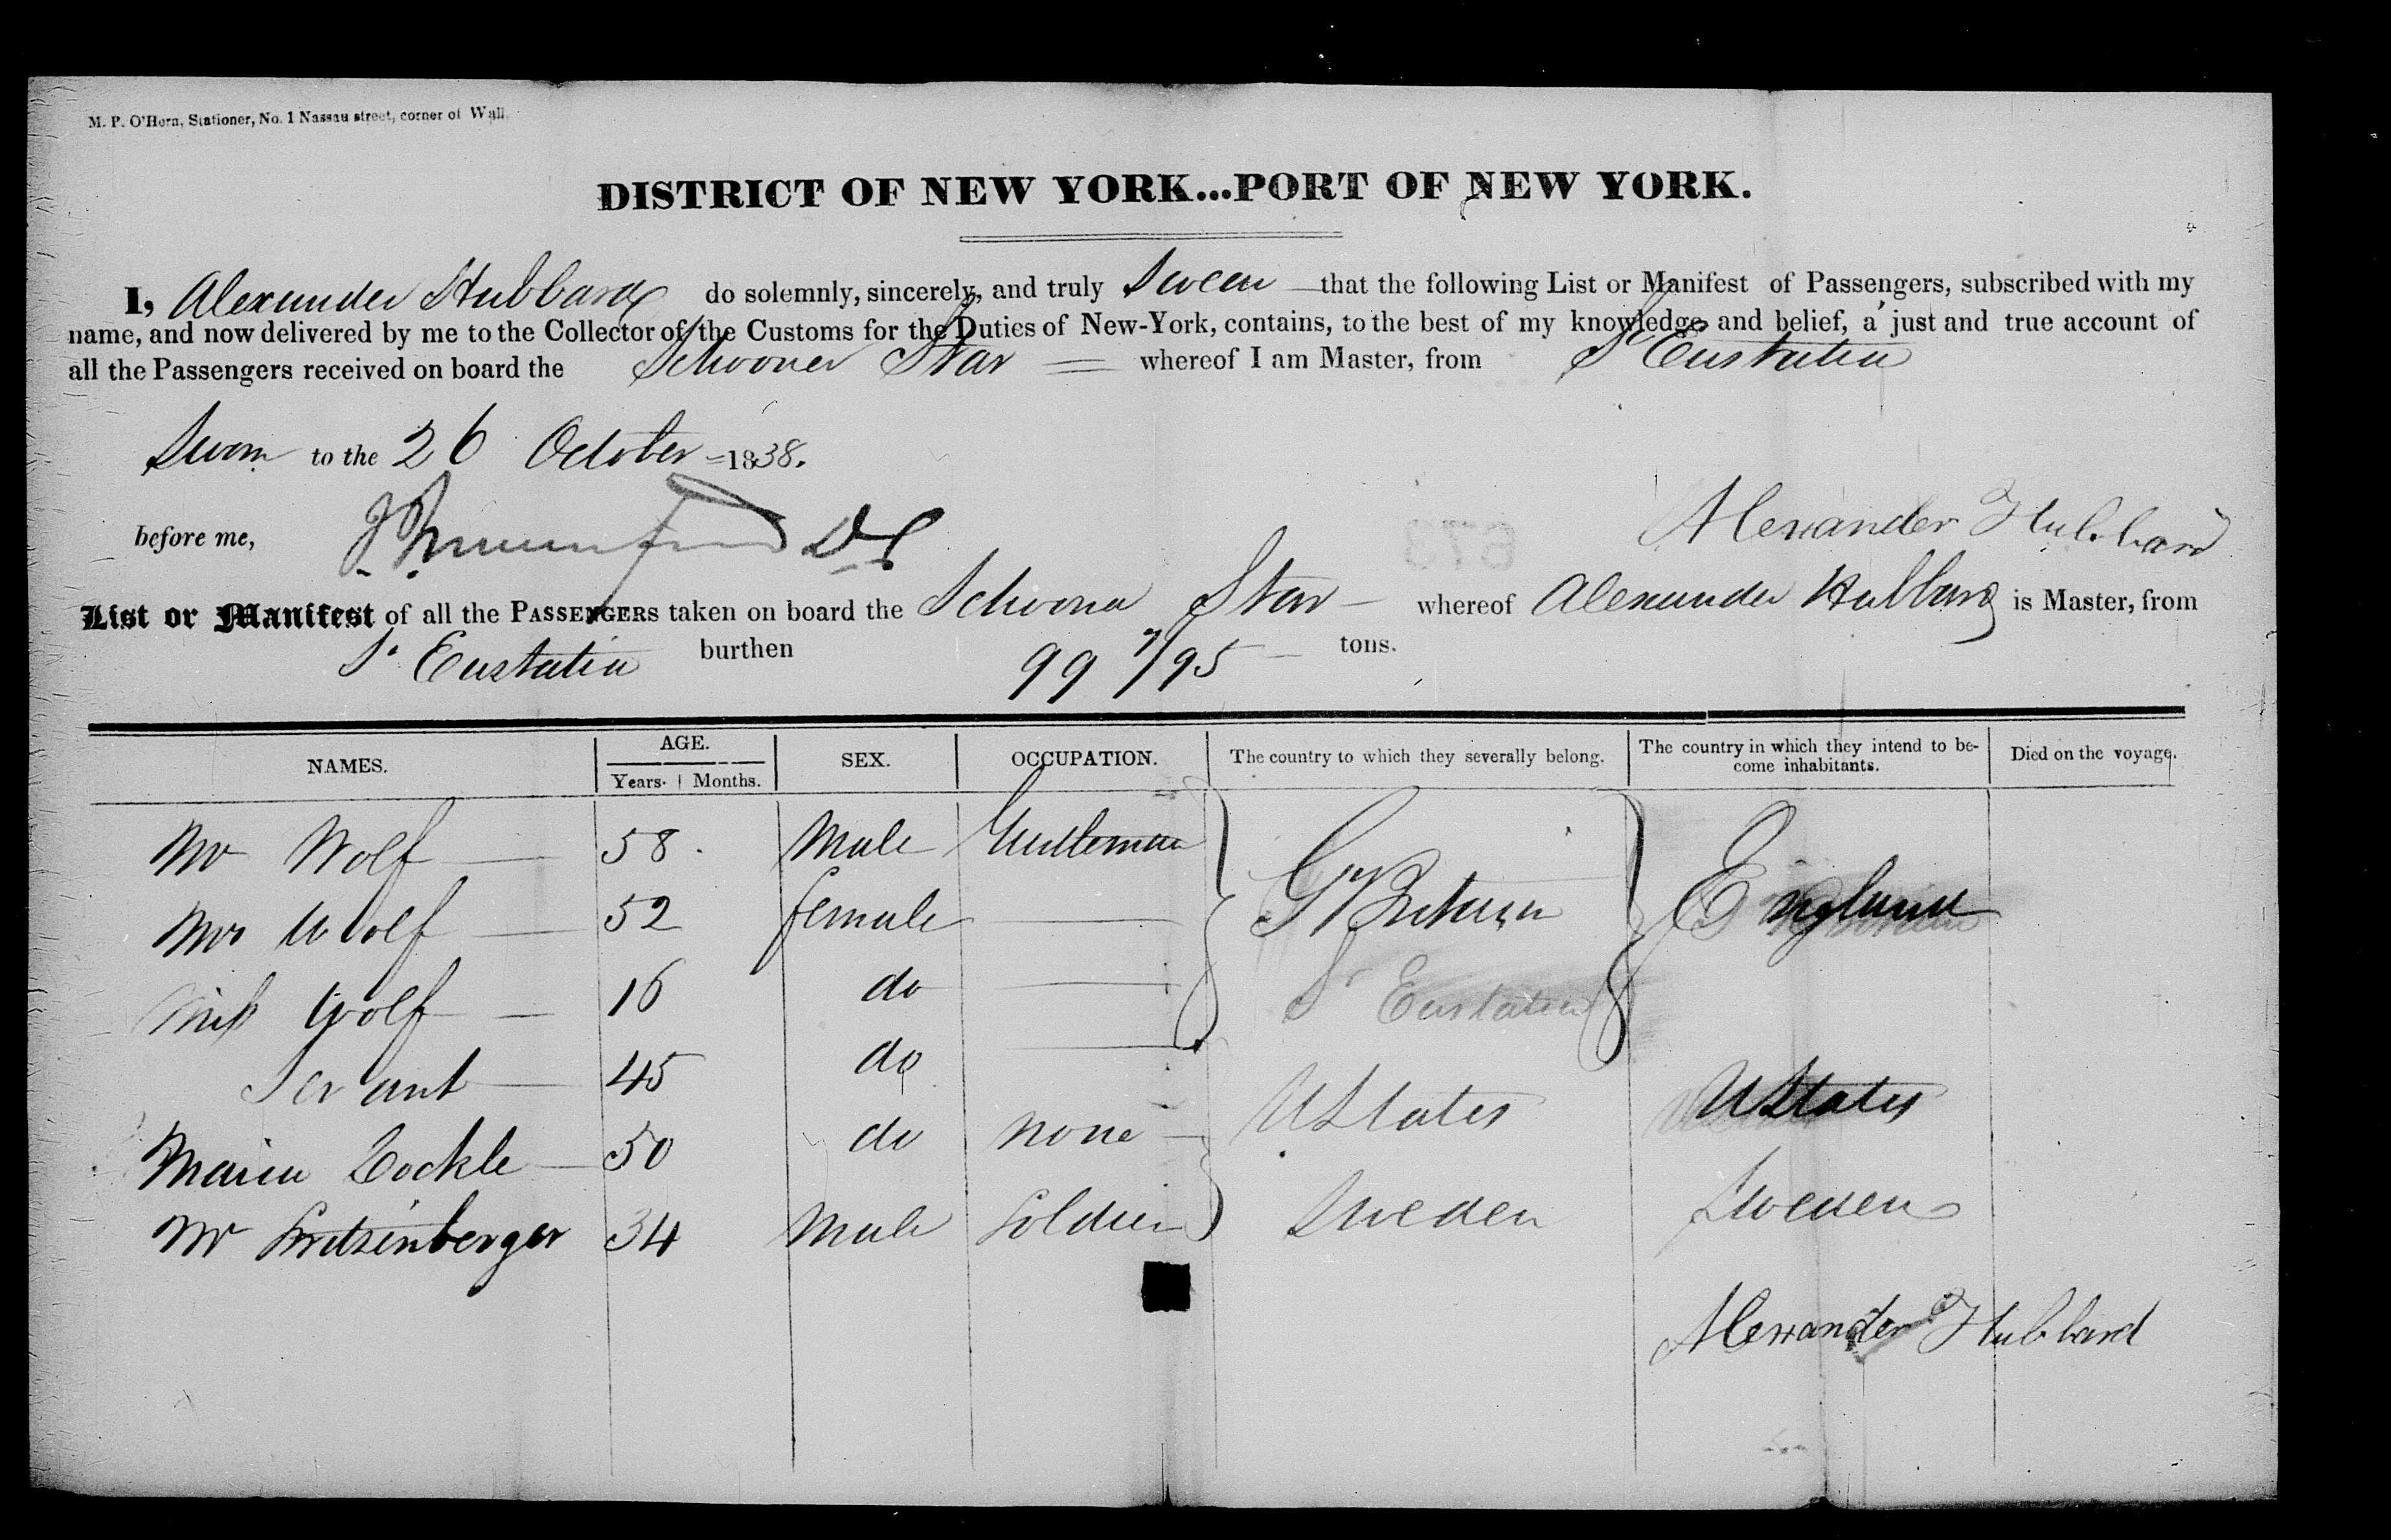 M. P. O'Hern, Stationer, No. 1 Nassau street, corner of Wall.
DISTRICT OF NEW YORK...PORT OF NEW YORK.
I, Alexander Hubbard do solemnly, sincerely, and truly Swear that the following List or Manifest of Passengers, subscribed with my
name, and now delivered by me to the Collector of the Customs for the Duties of New-York, contains, to the best of my knowledge and belief, a just and true account of
all the Passengers received on board the Schooner Star = whereof I am Master, from St Eustatia
Sworn to the 26 October 1838.
before me, DC
Alexander Hubbard
List or Manifest of all the PASSENGERS taken on board the Schooner Star — whereof Alexander Hubbard is Master, from
St Eustatia burthen 99 7/95 — tons.
NAMES. AGE. Years. Months. SEX. OCCUPATION. The country to which they severally belong. The country in which they intend to become inhabitants. Died on the voyage.
Mr Wolf — 58. Male Gentleman
Mrs Wolf — 52 female — Gt Britain England
Miss Wolf — 16 do — St Eustatia
Servant — 45 do —
Maria Cockle — 50 do none — UStates UStates
Mr 34 Male Soldier Sweden Sweden
Alexander Hubbard